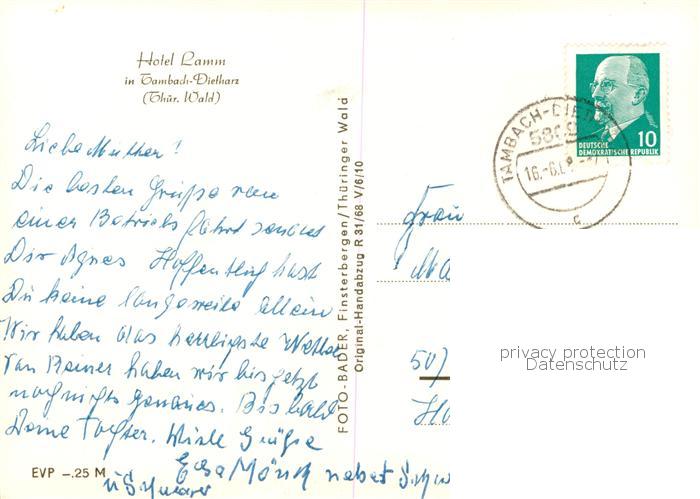 Hotel Lamm
in Tambach-Dietharz
(Thür. Wald)
Liebe Mutter!
Die besten Grüße von
einer Betriebsfahrt sendet
Dir Agnes Hoffentlich hast
Du keine Langeweile allein
Wir haben das herrlichste Wetter
Von Reiner haben wir bis jetzt
noch nichts genaues. Bis bald
Deine Tochter. Viele Grüße
nebst
u
EVP –.25 M
FOTO-BADER, Finsterbergen/Thüringer Wald
Original-Handabzug R 31/68 V/6/10
DEUTSCHE
DEMOKRATISCHE REPUBLIK
10
TAMBACH-DIET
16.-6.6
c
Frau
Ma
507
privacy protection
Datenschutz